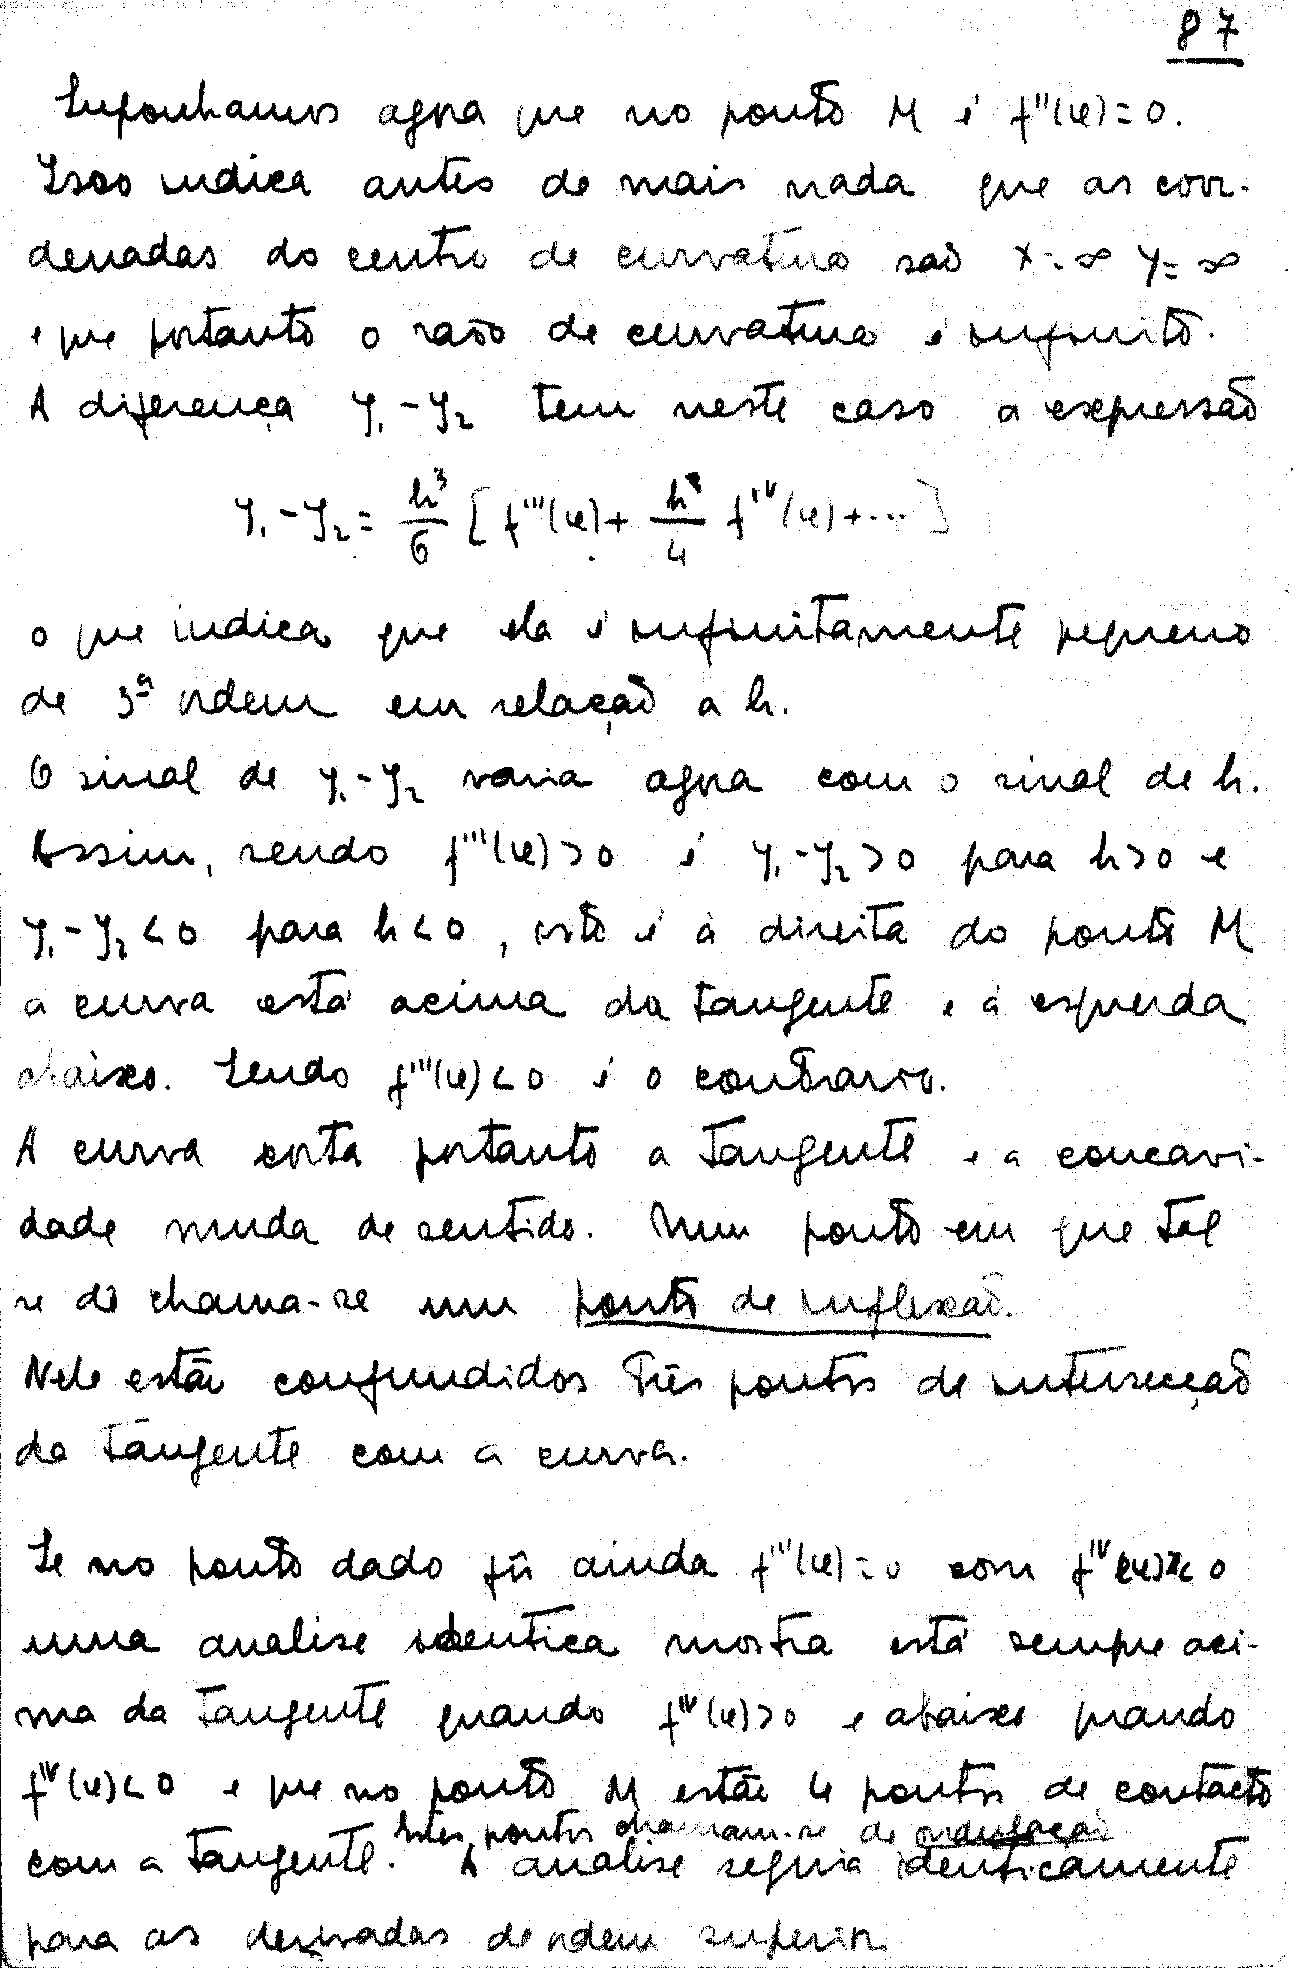 87
Suponhamos agora que no ponto M é f''(x)=0.
Isso indica antes de mais nada que as coor-
denadas do centro de curvatura são x=∞ y=∞
e que portanto o raio de curvatura é infinito.
A diferença y₁-y₂ tem neste caso a expressão
y₁-y₂ = h³/6 [f'''(x) + h/4 f^IV(x) + ...]
o que indica que ela é infinitamente pequeno
de 3ª ordem em relação a h.
O sinal de y₁-y₂ varia agora com o sinal de h.
Assim, sendo f'''(x)>0 é y₁-y₂>0 para h>0 e
y₁-y₂<0 para h<0, isto é à direita do ponto M
a curva está acima da tangente e à esquerda
abaixo. Sendo f'''(x)<0 é o contrario.
A curva corta portanto a tangente e a concavi-
dade muda de sentido. Num ponto em que tal
se dê chama-se um ponto de inflexão.
Nele estão confundidos três pontos de intersecção
da tangente com a curva.
Se no ponto dado fôr ainda f'''(x)=0 com f^IV(x) 0
uma analise identica mostra está sempre aci-
ma da tangente quando f^IV(x)>0 e abaixo quando
f^IV(x)<0 e que no ponto M estão 4 pontos de contacto
com a tangente. Estes pontos chamam-se de ondulação A analise seguia identicamente
para as derivadas de ordem superior.